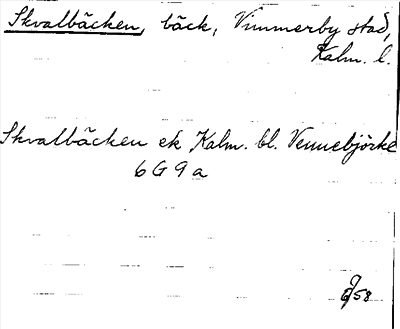 Skvalbäcken, bäck, Vimmerby stad,
Kalm. l.
Skvalbäcken ek Kalm. bl. Vennebjörke
6G9a
58